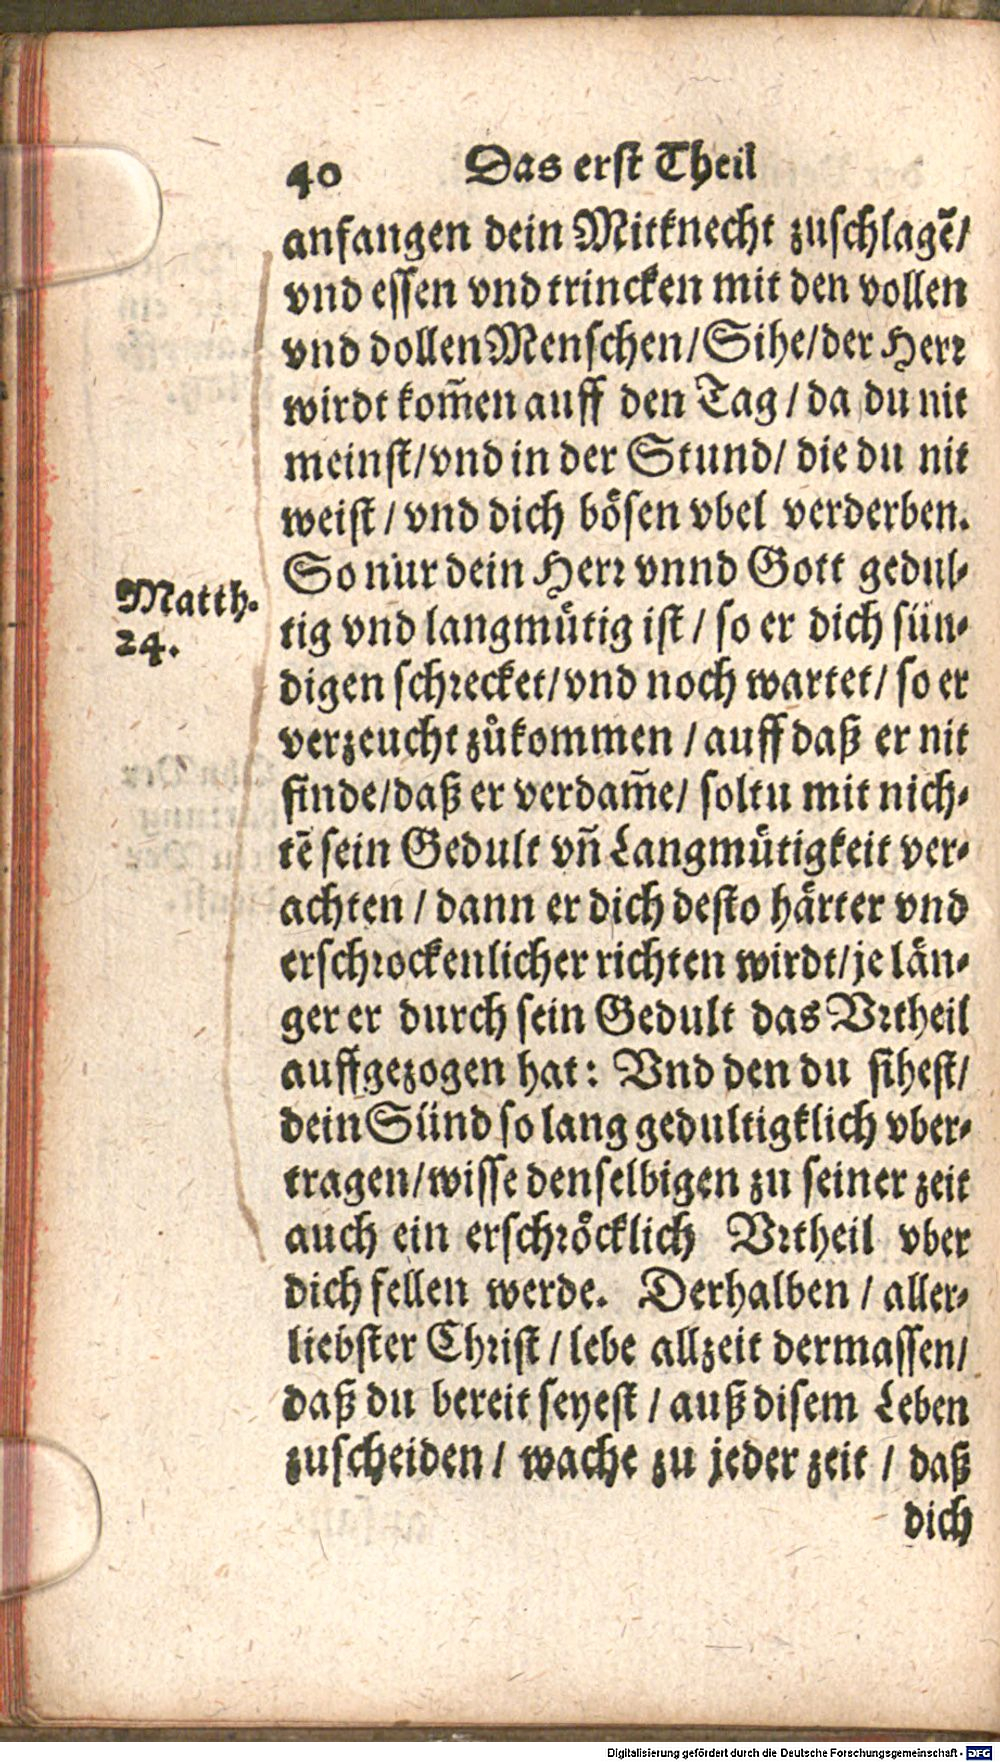 40 Das erst Theil
anfangen dein Mitknecht zuschlagẽ/
vnd essen vnd trincken mit den vollen
vnd dollen Menschen/Sihe/der Herr
wirdt kom̃en auff den Tag / da du nit
meinst/vnd in der Stund/ die du nit
weist / vnd dich bösen vbel verderben.
So nur dein Herr vnnd Gott gedul-
Matth.
24.
tig vnd langmütig ist / so er dich sün-
digen schrecket/vnd noch wartet/ so er
verzeucht zůkommen / auff daß er nit
finde/daß er verdam̃e/ soltu mit nich-
tẽ sein Gedult vñ Langmütigkeit ver-
achten / dann er dich desto härter vnd
erschrockenlicher richten wirdt/je län-
ger er durch sein Gedult das Vrtheil
auffgezogen hat: Vnd den du sihest/
dein Sünd so lang gedultigklich vber-
tragen/wisse denselbigen zu seiner zeit
auch ein erschröcklich Vrtheil vber
dich fellen werde. Derhalben / aller-
liebster Christ / lebe allzeit dermassen/
daß du bereit seyest / auß disem Leben
zuscheiden / wache zu jeder zeit / daß
dich
Digitalisierung gefördert durch die Deutsche Forschungsgemeinschaft - DFG